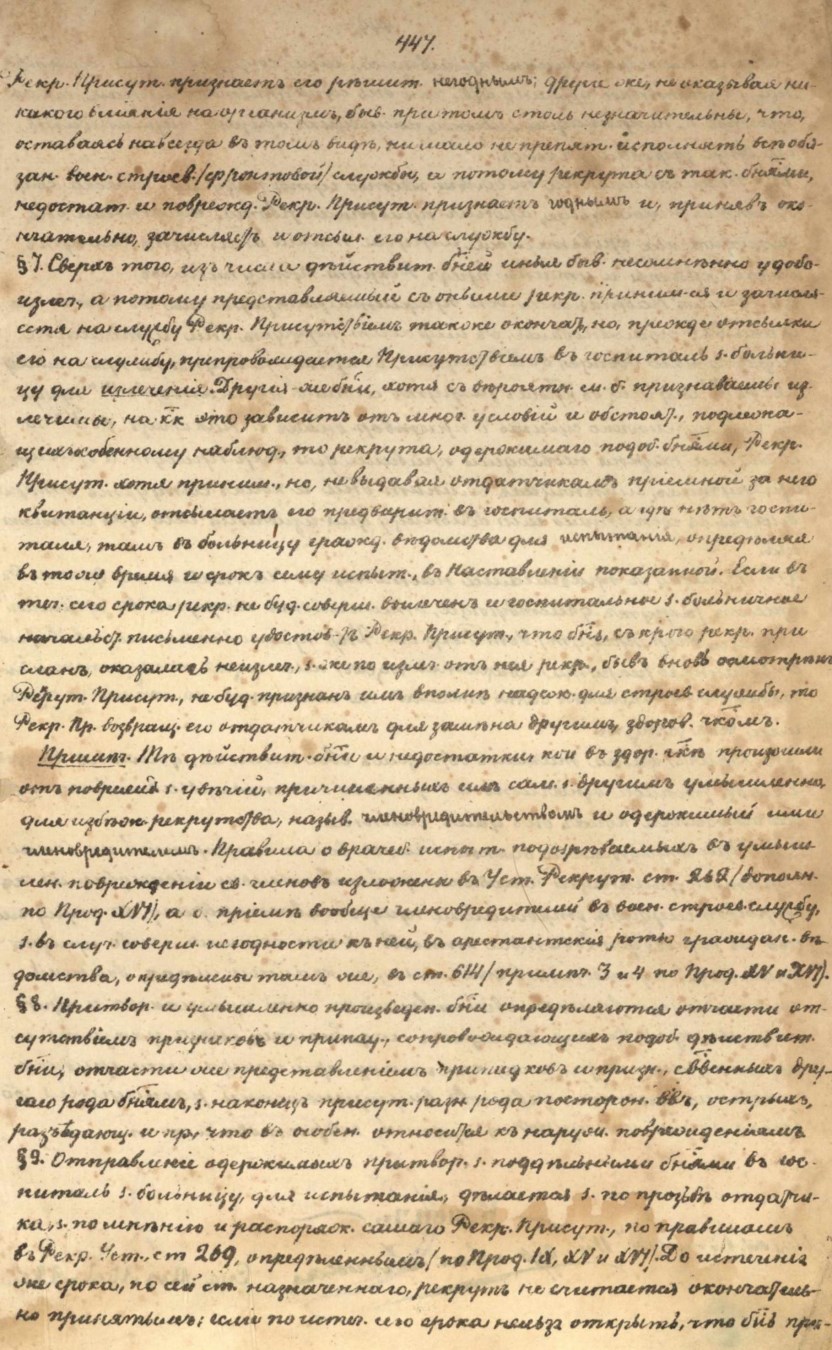 447.
Рекр. Присут. признаетъ его рѣшит. негоднымъ; другіе же, не оказывая ни-
какого вліянія на организмъ, быв. притомъ столь незначительны, что,
оставаясь навсегда въ томъ видѣ, ни мало не препят. исполнять всѣ обя-
зан. воен. строев. /фронтовой/ службы, а потому рекрута съ так. бн̃ями,
недостат. и поврежд. Рекр. Присут. признаетъ годнымъ и, принявъ око-
нчательно, зачисляетъ и отсыл. его на службу.
§7. Сверхъ того, изъ числа дѣйствит. бн̃ей иныя быв. несомнѣнно удобо-
излеч., а потому представляемый съ оными рекр. приним-ся и зачисля-
ется на службу Рекр. Присутствіемъ также окончат., но, прежде отсылки
его на службу, препровождается Присутствіемъ въ госпиталь s. больни-
цу для излеченія. Другія же бн̃и, хотя съ вѣроятн. м. б. признаваемы из-
лечимы, но к̃к это зависитъ отъ мног. условій и обстоят., подлежа-
щихъ особенному наблюд., то рекрута, одержимаго подоб. бн̃ями, Рекр.
Присут. хотя приним., но, не выдавая отдатчикамъ пріемной за него
квитанціи, отсылаетъ его предварит. въ госпиталь, а гдѣ нѣтъ госпи-
таля, тамъ въ больницу гражд. вѣдомства для испытанія, опредѣляя
въ тоже время и срокъ сему испыт., въ Наставленіи показанной. Если въ
теч. сего срока рекр. не буд. соверш. вылеченъ и госпитальное s. больничное
начальст. письменно удостов-тъ Рекр. Присут., что бн̃ь, съ к̃рою рекр. при-
сланъ, оказалась неизлеч., s. же по излеч. отъ нея рекр., бывъ вновь осмотрѣнъ
Рекрут. Присут., не буд. признанъ имъ вполнѣ надеж. для строев. службы, то
Рекр. Пр. возвращ. его отдатчикамъ для замѣна другимъ, здоров. ч̃комъ.
Примѣч. Тѣ дѣйствит. бн̃и и недостатки, кои въ здор. ч̃кѣ произошли
отъ поврежд. s. увѣчій, причиненныхъ имъ сам. s. другимъ умышленно
для избѣж. рекрутства, назыв. членовредительствомъ и одержимый ими
членовредителемъ. Правила о врачеб. испыт. подозрѣваемыхъ въ умыш-
лен. поврежденіи св. членовъ изложены въ Уст. Рекрут. ст. 262 /дополн.
по Прод. XVI/, а о пріемѣ вообще членовредителей въ воен. строев. службу,
s. въ случ. соверш. негодности къ ней, въ арестантскія роты граждан. вѣ-
домства, опредѣлены тамъ же, въ ст. 614 /примѣч. 3 и 4 по Прод. XV и XVI/.
§8. Притвор. и умышленно произведен. бн̃и опредѣляются отчасти от-
сутствіемъ признаковъ и припад., сопровождающихъ подоб. дѣйствит.
бн̃и, отчасти же представленіемъ припадковъ и призн., свойственныхъ дру-
гаго рода бн̃ямъ, s. наконецъ присут. разн. рода посторон. вещ., острыхъ,
разъѣдающ. и пр., что въ особен. относится къ наружн. поврежденіямъ.
§9. Отправленіе одержимыхъ притвор. s. поддѣльными бн̃ями въ гос-
питаль s. больницу, для испытанія, дѣлается s. по прозьбѣ отдатчи-
ка, s. по мнѣнію и распоряж. самаго Рекр. Присут., по правиламъ
въ Рекр. Уст., ст 269, опредѣленнымъ /по Прод. IX, XV и XVI/. До истеченія
же срока, по сей ст. назначеннаго, рекрутъ не считается окончатель-
но принятымъ; если по истеч. его срока нельзя открыть, что бн̃ь при-